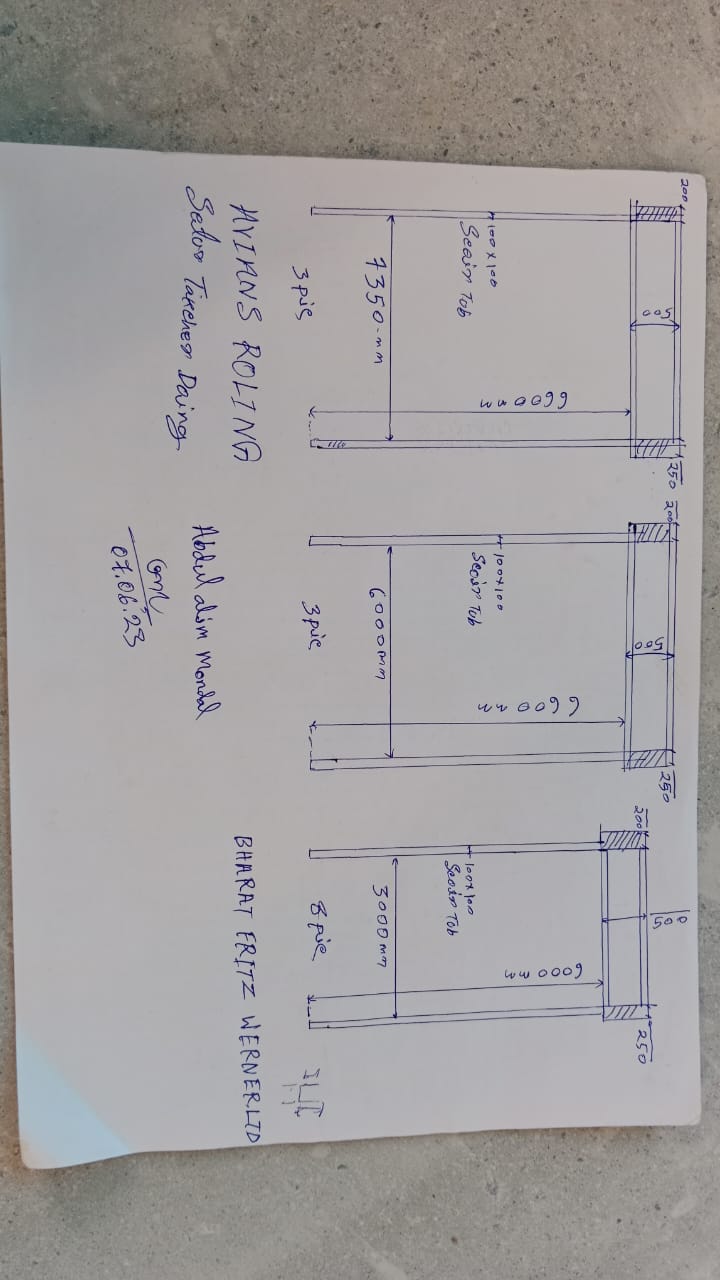 200
500
250
6600 mm
100 x 100
Scair Tub
7350-mm
3 pic
200
500
250
6600 mm
100x100
Scair Tub
6000mm
3 pic
200
500
250
6000 mm
100x100
Scair Tub
3000 mm
8 pic
AVIANS ROLING
Daing
Abdul alim Mondal
07.06.23
BHARAT FRITZ WERNER.LTD